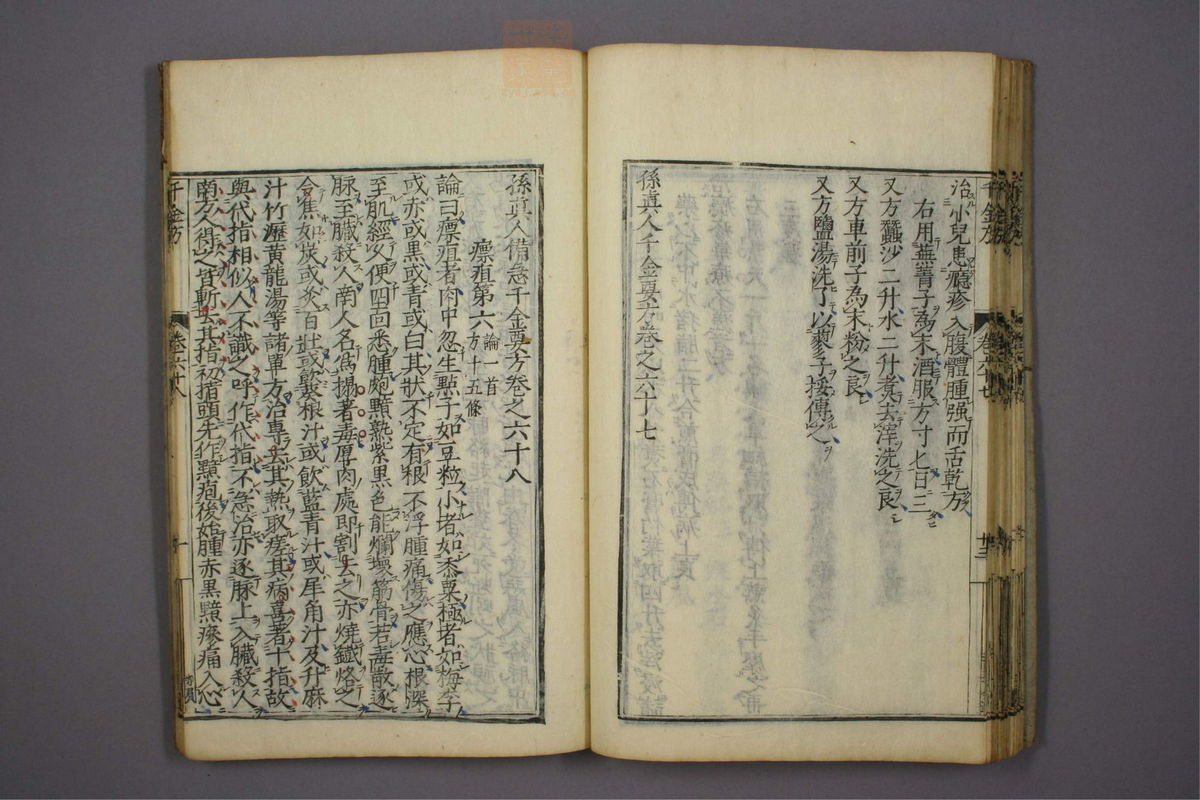 治小兒患癮疹入腹體腫强而舌乾方
右用蕪菁子為末酒服方寸匕日三
又方蠶沙二升水二升煮去滓洗之良
又方車前子為末粉之良
又方鹽湯洗了以蓼子挼傅之
孫真人千金要方卷之六十七
孫真人備急千金要方卷之六十八
瘭疽第六論一首方十五條
論曰瘭疽者肉中忽生點子如豆粒小者如黍粟極者如梅李
或赤或黑或青或白其狀不定有根不浮腫痛傷之應心根深
至肌經久便四面悉腫皰黯熟紫黑色能爛壞筋骨若毒散逐
脉至臟殺人南人名為搨著毒厚肉處即割去之亦燒鐵烙之
令焦如炭或灸百壯或飲葵根汁或飲藍青汁或犀角汁及升麻
汁竹瀝黄龍湯等諸單方治專去其熱取瘥其病喜著十指故
與代指相似人不識之呼作代指不急治亦逐脉上入臟殺人
南人得之皆斬去其指初指頭先作黯皰後始腫赤黑黯瘮痛入心
千金方
卷六十八
一
千金方
卷六十七
廿三